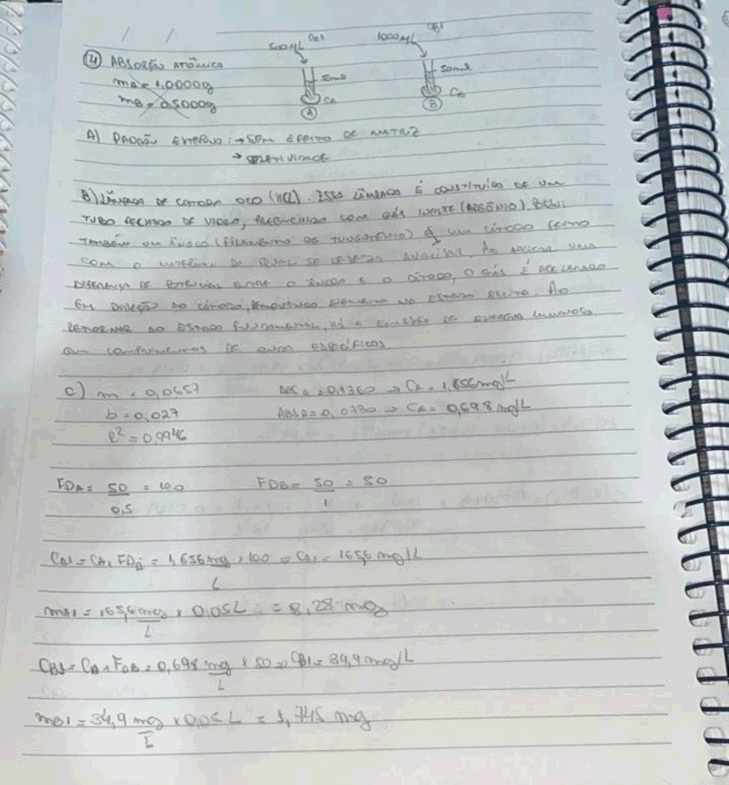 500µL CA1 1000µL CB1
④ ABSORÇÃO ATÔMICA
mA = 1,0000g 50mL 50mL
mB = 0,5000g CA CB
Ⓐ Ⓑ
A) PADRÃO EXTERNO: → SEM EFEITO DE MATRIZ
→ SELETIVIDADE
B) LÂMPADA DE CATODO OCO (HCL). ESSA LÂMPADA É CONSTITUÍDA DE UM
TUBO FECHADO DE VIDRO, PREENCHIDO COM GÁS INERTE (ARGÔNIO). POSSUI
TAMBÉM UM ÂNODO (FILAMENTO DE TUNGSTÊNIO) E UM CÁTODO FEITO
COM O MATERIAL DO QUAL SE DESEJA ANALISAR. AO APLICAR UMA
DIFERENÇA DE POTENCIAL ENTRE O ÂNODO E O CÁTODO, O GÁS É ACELERADO
EM DIREÇÃO AO CÁTODO, NO ESTADO EXCITADO. AO
RETORNAR AO ESTADO FUNDAMENTAL, HÁ A EMISSÃO DE ENERGIA LUMINOSA
EM COMPRIMENTOS DE ONDA ESPECÍFICOS
C) m = 0,0657 ABSA = 0,1360 → CA = 1,656mg/L
b = 0,027 0,0730 → = 0,698 mg/L
R² = 0,9946
FDA = 50/0,5 = 100 FDB = 50/1 = 50
CA1 = CA x FDA = 1,656 mg/L x 100 => CA1 = 165,6 mg/L
mA1 = 165,6 mg/L x 0,05L = 8,28 mg
CB1 = CB x FDB = 0,698 mg/L x 50 => CB1 = 34,9 mg/L
mB1 = 34,9 mg/L x 0,05 L = 1,745 mg